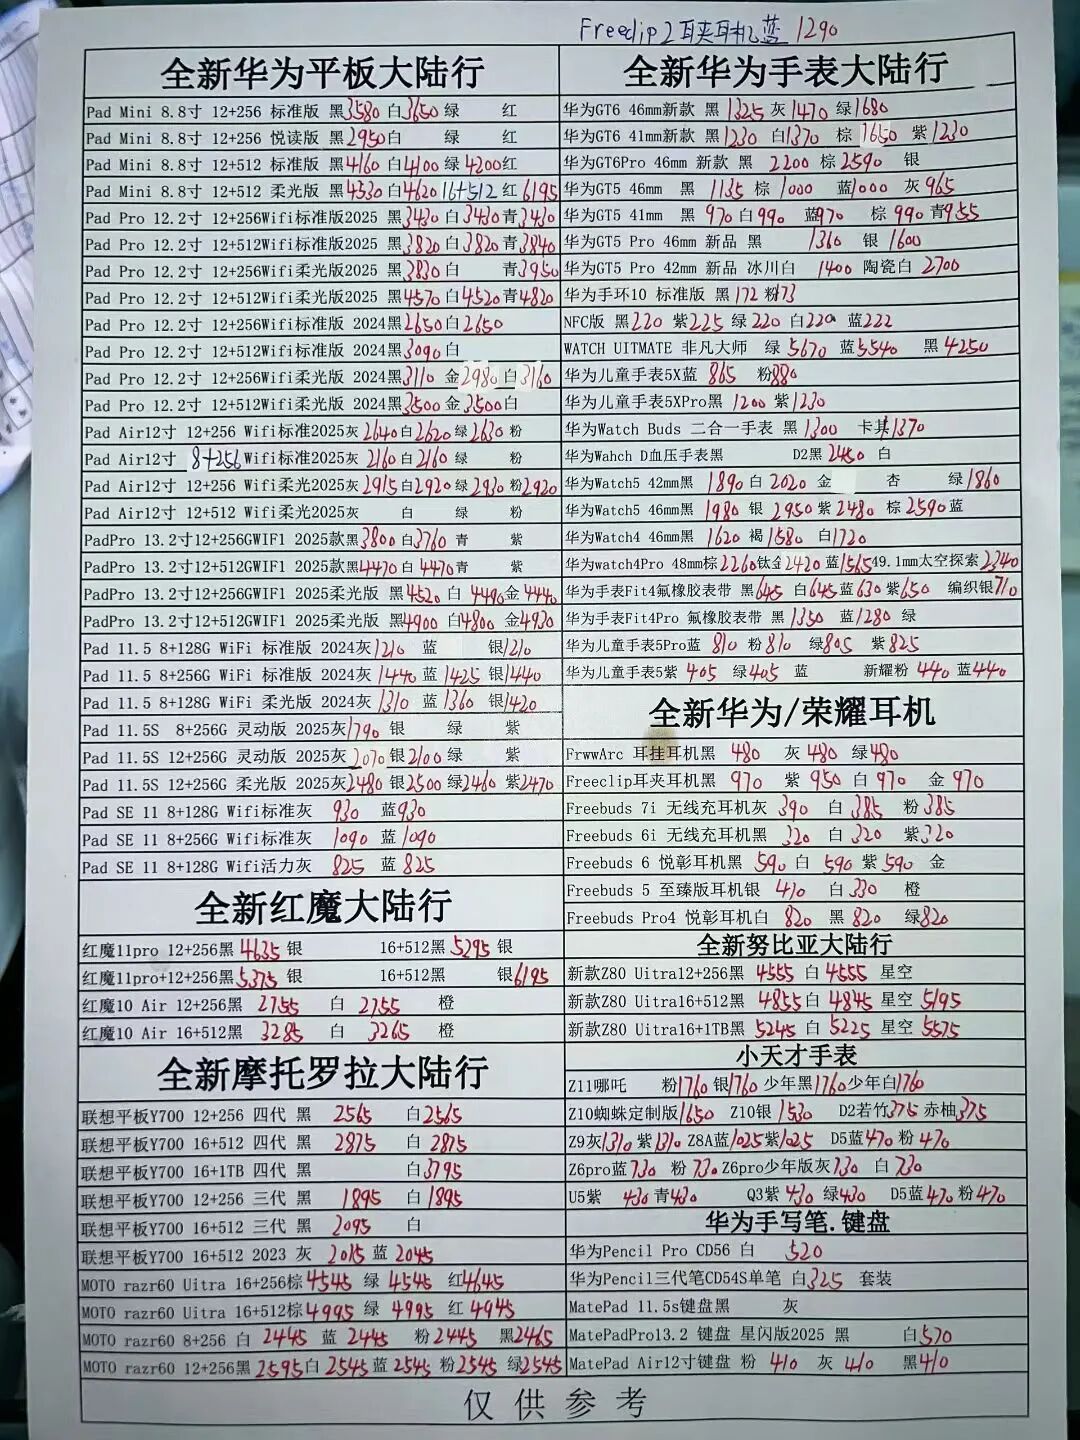 Freeclip 2 耳夹耳机蓝 1290
全新华为平板大陆行
Pad Mini 8.8寸 12+256 标准版 黑3580 白3650 绿 红
Pad Mini 8.8寸 12+256 悦读版 黑2950白 绿 红
Pad Mini 8.8寸 12+512 标准版 黑4160 白4100 绿 4200红
Pad Mini 8.8寸 12+512 柔光版 黑4330 白4620 16+512 红 6195
Pad Pro 12.2寸 12+256Wifi标准版2025 黑3430 白 3430 青3430
Pad Pro 12.2寸 12+512Wifi标准版2025 黑3820 白 3820 青3840
Pad Pro 12.2寸 12+256Wifi柔光版2025 黑3830 白 青3950
Pad Pro 12.2寸 12+512Wifi柔光版2025 黑4570 白4520青4820
Pad Pro 12.2寸 12+256Wifi标准版 2024黑2650白2650
Pad Pro 12.2寸 12+512Wifi标准版 2024黑3090白
Pad Pro 12.2寸 12+256Wifi柔光版 2024黑3110 金2980 白3160
Pad Pro 12.2寸 12+512Wifi柔光版 2024黑3500金3500白
Pad Air12寸 12+256 Wifi标准2025灰 2640白2620绿2630 粉
Pad Air12寸 8+256 Wifi标准2025灰 2160 白2160 绿 粉
Pad Air12寸 12+256 Wifi柔光2025灰 2915白2920绿2930粉2920
Pad Air12寸 12+512 Wifi柔光2025灰 白 绿 粉
PadPro 13.2寸12+256GWIF1 2025款黑3800白3760 青 紫
PadPro 13.2寸12+512GWIF1 2025款黑4470白 4470青 紫
PadPro 13.2寸12+256GWIF1 2025柔光版 黑4520 白 4490金 4440
PadPro 13.2寸12+512GWIF1 2025柔光版 黑4900 白4800 金4930
Pad 11.5 8+128G WiFi 标准版 2024灰1210 蓝 银1210
Pad 11.5 8+256G WiFi 标准版 2024灰1440 蓝1425 银1440
Pad 11.5 8+128G WiFi 柔光版 2024灰1310 蓝1360 银1420
Pad 11.5S 8+256G 灵动版 2025灰1790 银 绿 紫
Pad 11.5S 12+256G 灵动版 2025灰2070 银2100绿 紫
Pad 11.5S 12+256G 柔光版 2025灰2480 银2500 绿2460 紫2470
Pad SE 11 8+128G Wifi标准灰 930 蓝930
Pad SE 11 8+256G Wifi标准灰 1090 蓝1090
Pad SE 11 8+128G Wifi活力灰 825 蓝 825
全新红魔大陆行
红魔11pro 12+256黑 4635 银 16+512黑 5295 银
红魔11pro+12+256黑5375 银 16+512黑 银6195
红魔10 Air 12+256黑 2755 白 2755 橙
红魔10 Air 16+512黑 3285 白 3265 橙
全新摩托罗拉大陆行
联想平板Y700 12+256 四代 黑 2565 白2565
联想平板Y700 16+512 四代 黑 2875 白 2875
联想平板Y700 16+1TB 四代 黑 白3795
联想平板Y700 12+256 三代 黑 1895 白1895
联想平板Y700 16+512 三代 黑 2095 白
联想平板Y700 16+512 2023 灰 2015 蓝 2045
MOTO razr60 Uitra 16+256棕4545 绿 4545 红4645
MOTO razr60 Uitra 16+512棕4995 绿 4995 红 4945
MOTO razr60 8+256 白 2445 蓝 2445 粉2445 黑2465
MOTO razr60 12+256黑 2595白 2545 蓝 2545 粉2545 绿2545
全新华为手表大陆行
华为GT6 46mm新款 黑 1325 灰 1470 绿1680
华为GT6 41mm新款 黑1230 白1370 棕 1650 紫1230
华为GT6Pro 46mm 新款 黑 2200 棕2590 银
华为GT5 46mm 黑 1135 棕 1000 蓝1000 灰 965
华为GT5 41mm 黑 970 白990 蓝970 棕 990 青955
华为GT5 Pro 46mm 新品 黑 1360 银 1600
华为GT5 Pro 42mm 新品 冰川白 1400 陶瓷白 2700
华为手环10 标准版 黑 172 粉173
NFC版 黑220 紫225 绿 220 白220 蓝222
WATCH UITMATE 非凡大师 绿 5670 蓝5540 黑 4250
华为儿童手表5X蓝 865 粉880
华为儿童手表5XPro黑 1200 紫1230
华为Watch Buds 二合一手表 黑 1300 卡其1370
华为Wahch D血压手表黑 D2黑 2450 白
华为Watch5 42mm黑 1890白 2020 金 杏 绿 1860
华为Watch5 46mm黑 1980 银 2950紫 2480 棕 2590蓝
华为Watch4 46mm黑 1620 褐1580 白1720
华为watch4Pro 48mm棕 2260钛金2420 蓝156549.1mm太空探索2340
华为手表Fit4氟橡胶表带 黑645 白645蓝630紫650 编织银710
华为手表Fit4Pro 氟橡胶表带 黑 1350 蓝1280 绿
华为儿童手表5Pro蓝 810 粉810 绿805 紫825
华为儿童手表5紫 405 绿405 蓝 新耀粉 440 蓝440
全新华为/荣耀耳机
FrwwArc 耳挂耳机黑 480 灰 480 绿480
Freeclip耳夹耳机黑 970 紫 950 白 970 金 970
Freebuds 7i 无线充耳机灰 390 白 385 粉 385
Freebuds 6i 无线充耳机黑 320 白 320 紫320
Freebuds 6 悦彰耳机黑 590 白 590 紫590 金
Freebuds 5 至臻版耳机银 410 白330 橙
Freebuds Pro4 悦彰耳机白 820 黑 820 绿820
全新努比亚大陆行
新款Z80 Uitra12+256黑 4555 白 4555 星空
新款Z80 Uitra16+512黑 4855白 4845 星空 5195
新款Z80 Uitra16+1TB黑 5245 白 5225 星空 5575
小天才手表
Z11哪吒 粉1760 银1760 少年黑1760少年白1760
Z10蜘蛛定制版1650 Z10银 1530 D2若竹375 赤柚375
Z9灰1310紫1310 Z8A蓝1025紫1025 D5蓝470 粉 470
Z6pro蓝730 粉 730 Z6pro少年版灰730 白 730
U5紫 430青430 Q3紫430 绿430 D5蓝470粉470
华为手写笔.键盘
华为Pencil Pro CD56 白 520
华为Pencil三代笔CD54S单笔 白325 套装
MatePad 11.5s键盘黑 灰
MatePadPro13.2 键盘 星闪版2025 黑 白570
MatePad Air12寸键盘 粉 410 灰 410 黑410
仅供参考